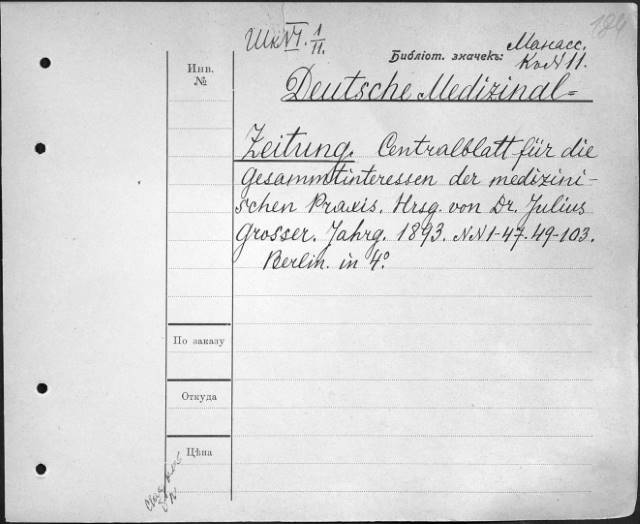 184
Шк VI. 1/11.
Библіот. значекъ: Манасс.
Кв N 11.
Инв.
№
Deutsche Medizinal=
Zeitung. Centralblatt für die
Gesammtinteressen der medizini-
schen Praxis. Hrsg. von Dr. Julius
Grosser. Jahrg. 1893. NN 1-47. 49-103.
Berlin. in 4°.
По заказу
Откуда
Цѣна